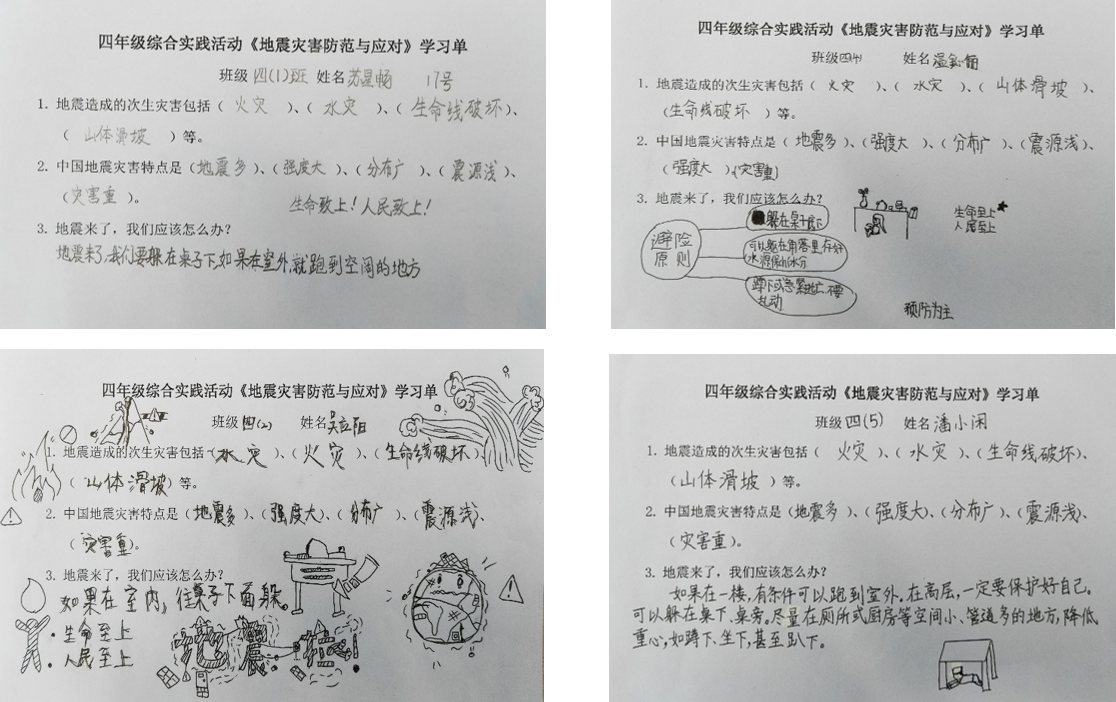 四年级综合实践活动《地震灾害防范与应对》学习单
班级 四(1)班 姓名 苏星畅 17号
1. 地震造成的次生灾害包括（ 火灾 ）、（ 水灾 ）、（ 生命线破坏）、
（ 山体滑坡 ）等。
2. 中国地震灾害特点是（地震多 ）、（强度大 ）、（分布广 ）、（震源浅）、
（灾害重 ）。
生命致上！人民致上！
3. 地震来了，我们应该怎么办？
地震来了,我们要躲在桌子下,如果在室外,就跑到空阔的地方
四年级综合实践活动《地震灾害防范与应对》学习单
班级 姓名
1. 地震造成的次生灾害包括（ 火灾 ）、（ 水灾 ）、（ 山体滑坡 ）、
（生命线破坏 ）等。
2. 中国地震灾害特点是（ 地震多 ）、（强度大 ）、（分布广 ）、（震源浅）、
（强度大 ）（灾害重）
3. 地震来了，我们应该怎么办？
避险
原则
躲在桌子底下
可以躲在角落里,存好
水源保水分
蹲下或急紧逃亡,不要
乱动
生命至上
人民至上
预防为主
四年级综合实践活动《地震灾害防范与应对》学习单
班级 四(2) 姓名 吴立阳
1. 地震造成的次生灾害包括（水灾 ）、（火灾 ）、（生命线破坏）、
（山体滑坡）等。
2. 中国地震灾害特点是（地震多 ）、（强度大）、（分布广 ）、（震源浅）、
（灾害重）。
3. 地震来了，我们应该怎么办？
如果在室内，往桌子下面躲。
·生命至上
·人民至上
地震啦！
四年级综合实践活动《地震灾害防范与应对》学习单
班级 四(5) 姓名 潘小闲
1. 地震造成的次生灾害包括（ 火灾 ）、（ 水灾 ）、（生命线破坏）、
（山体滑坡 ）等。
2. 中国地震灾害特点是（地震多 ）、（强度大）、（分布广 ）、（震源浅）、
（灾害重）。
3. 地震来了，我们应该怎么办？
如果在一楼,有条件可以跑到室外。在高层,一定要保护好自己。
可以躲在桌下、桌旁。尽量在厕所或厨房等空间小、管道多的地方,降低
重心,如蹲下、坐下,甚至趴下。